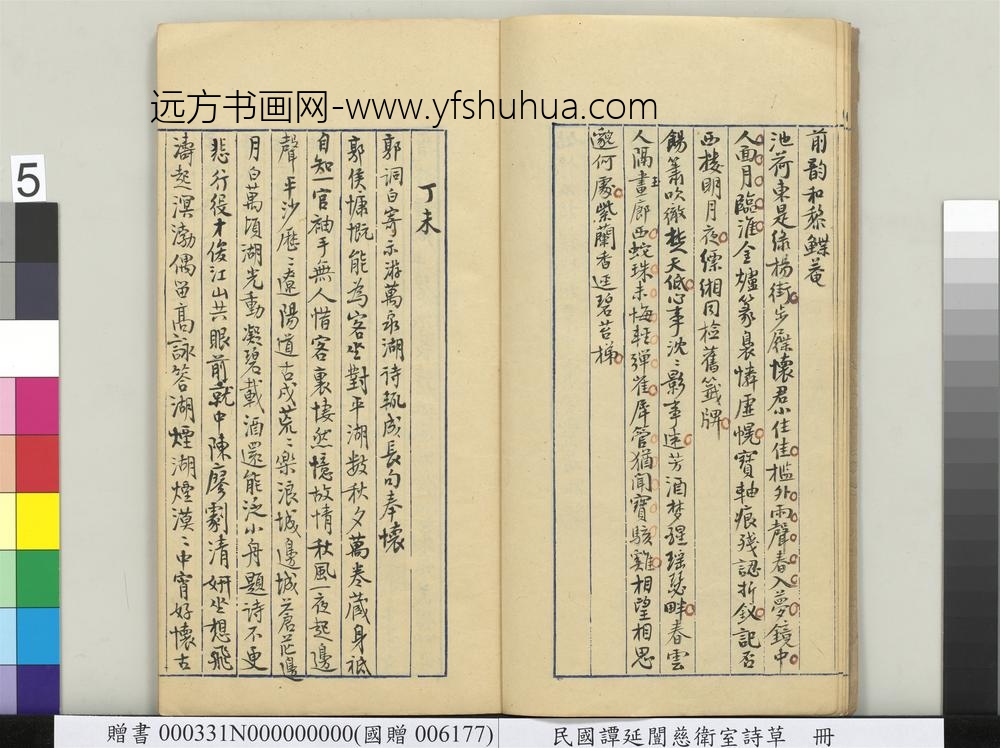 远方书画网-www.yfshuhua.com
前韵和黎鲽菴
池荷東是綠楊街步屧懷君小住佳檻外雨聲春入夢鏡中
人面月臨淮金爐篆裊憐虛幌寶軸痕殘認折釵記否
西樓明月夜縹緗同檢舊籤牌
餳簫吹徹楚天低心事沈〻影事迷芳酒梦醒瑶瑟畔春雲
人隔畫廊西蛇珠未悔輕彈雀犀管猶聞寶駭雞相望相思
邈何處紫蘭香逕碧苔梯
玉
丁未
郭詞白寄示游萬泉湖诗輒成長句奉懷
郭侯慷慨能為客坐對平湖數秋夕萬卷藏身祗
自知一官袖手無人惜客裏悽然憶故情秋風一夜起邊
聲平沙歷〻遼陽道古戍荒〻樂浪城邊城蒼茫邊
月白萬頃湖光動凝碧載酒還能泛小舟題诗不更
悲行役才俊江山共眼前就中陳廖劇清妍坐想飛
濤起溟渤偶留高詠答湖煙湖煙漠〻中宵好懷古
5
贈書 000331N000000000(國贈 006177)
民國譚延闓慈衛室詩草 冊